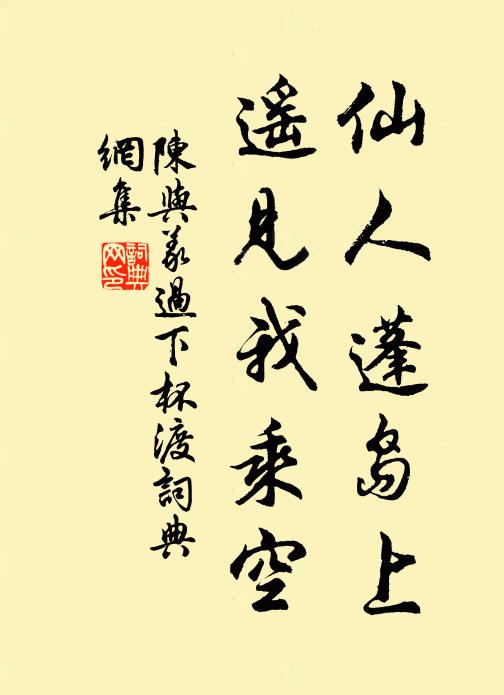 仙人蓬島上
遥見我乘空
陳與義過下杯渡詞典
網集
詞典
网印